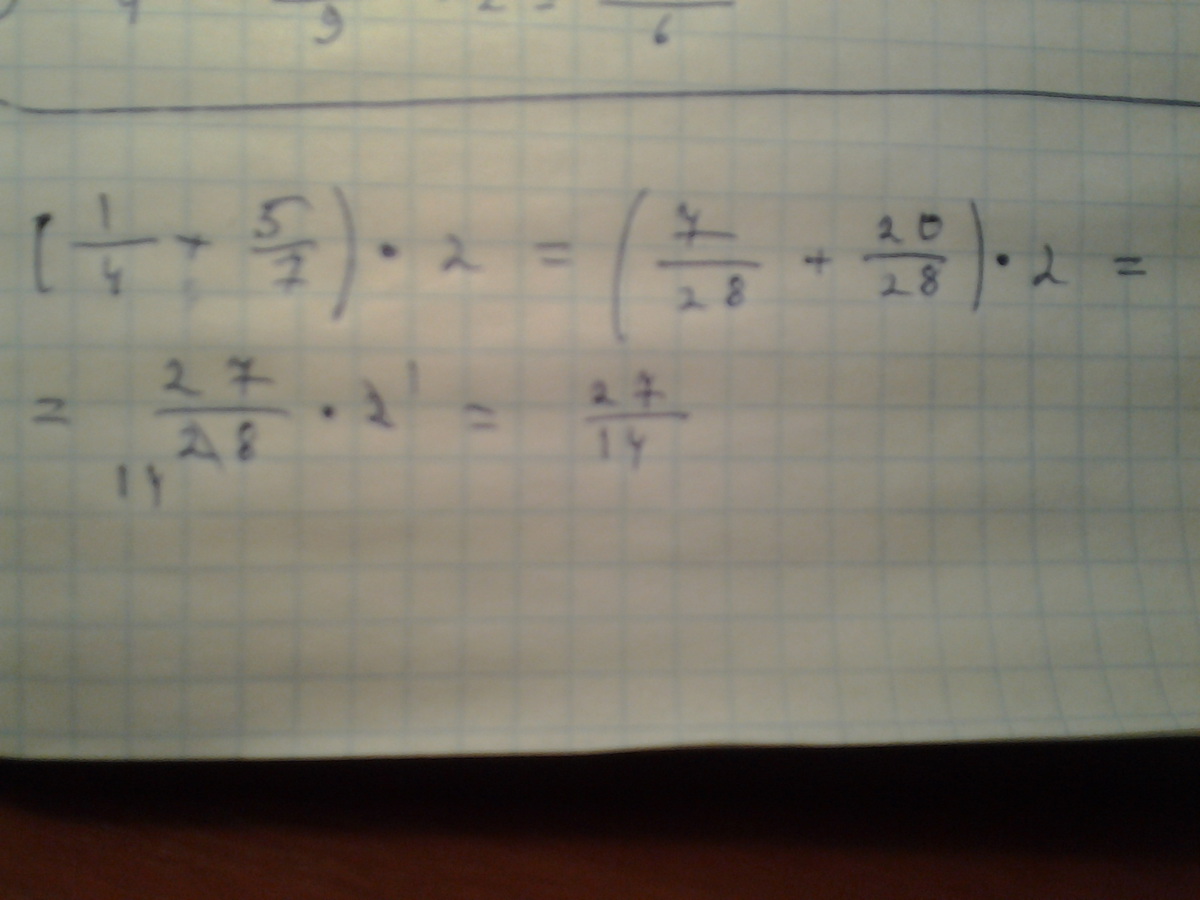 9 2 = 6
( 1/4 + 5/7 ) • 2 = ( 7/28 + 20/28 ) • 2 =
= 27/28 14 • 2 1 = 27/14